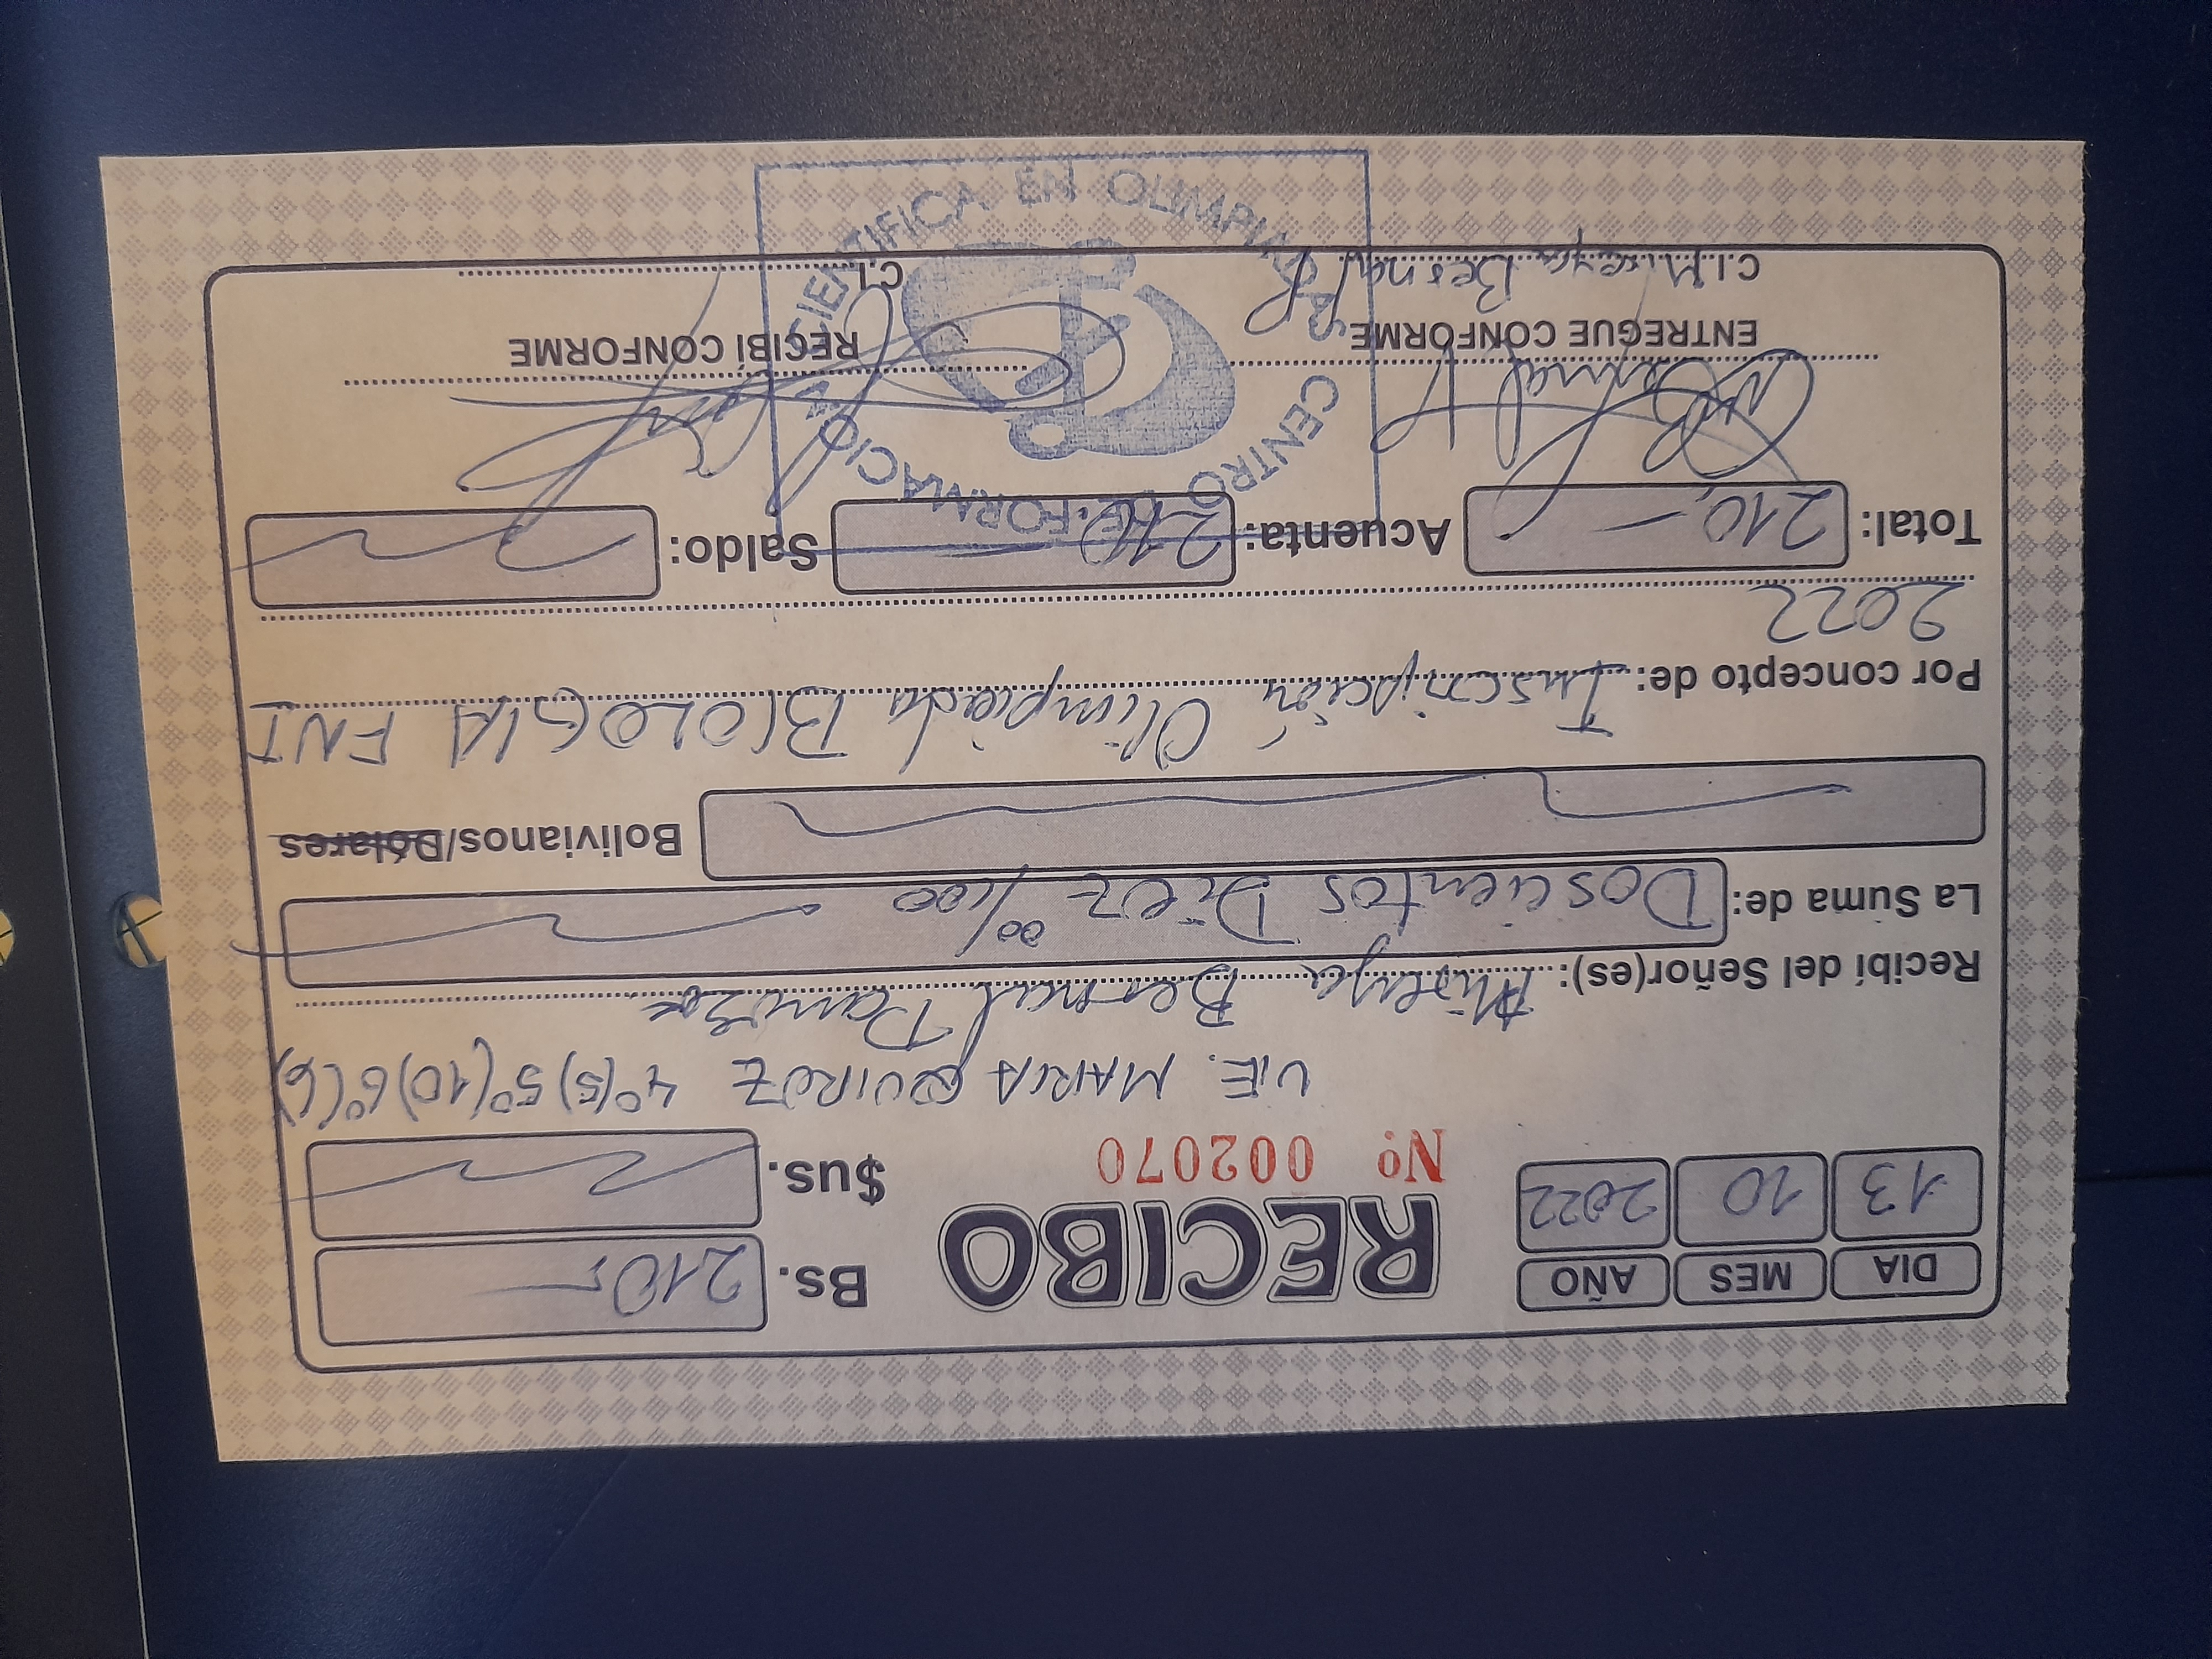 DIA MES AÑO
13 10 2022
RECIBO
Nº 002070
Bs. 210,-
$us.
U.E. MARIA QUIROZ 4º(5) 5º(10) 6º(6)
Recibí del Señor(es): Mireya Bernal
La Suma de: Doscientos Diez 00/100
Bolivianos/Dólares
Por concepto de: Inscripción Olimpiada BIOLOGIA FNI
2022
Total: 210,- Acuenta: 210 Saldo:
CENTRO DE FORMACION
ENTREGUE CONFORME
RECIBÍ CONFORME
C.I. Mireya Bernal P.
C.I.